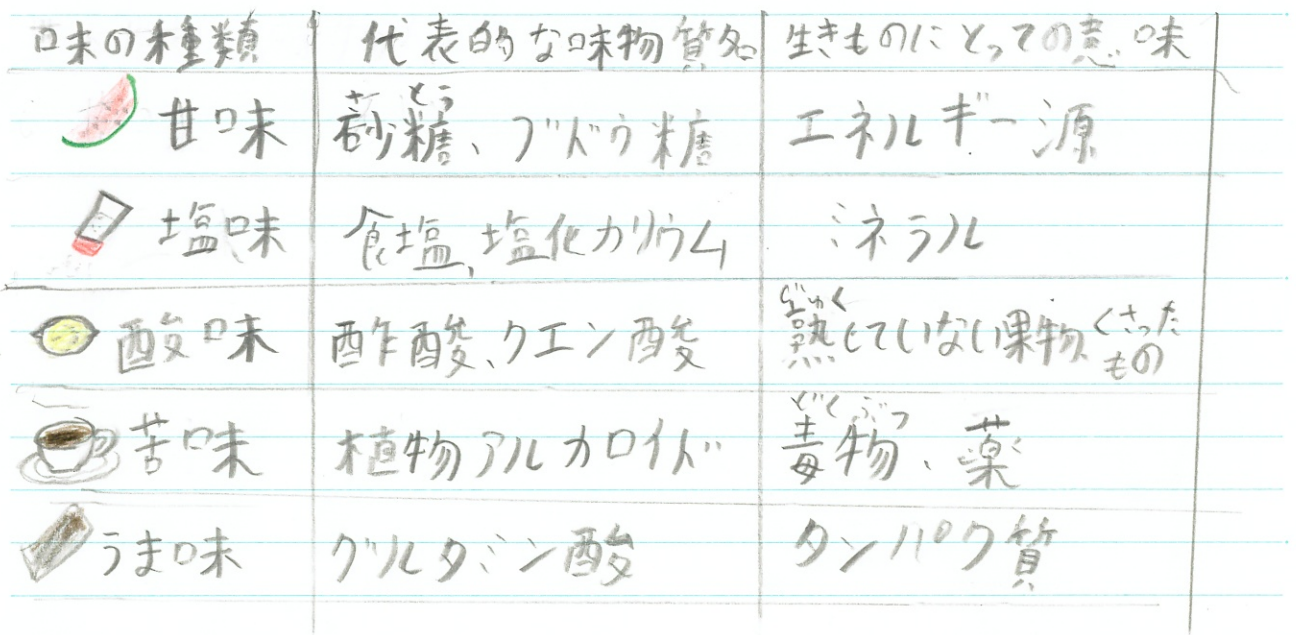 味の種類 代表的な味物質名 生きものにとっての意味
さ とう
甘味 砂糖、ブドウ糖 エネルギー源
塩味 食塩、塩化カリウム ミネラル
じゅく
酸味 酢酸、クエン酸 熟していない果物 くさった
もの
どくぶつ
苦味 植物アルカロイド 毒物、薬
うま味 グルタミン酸 タンパク質